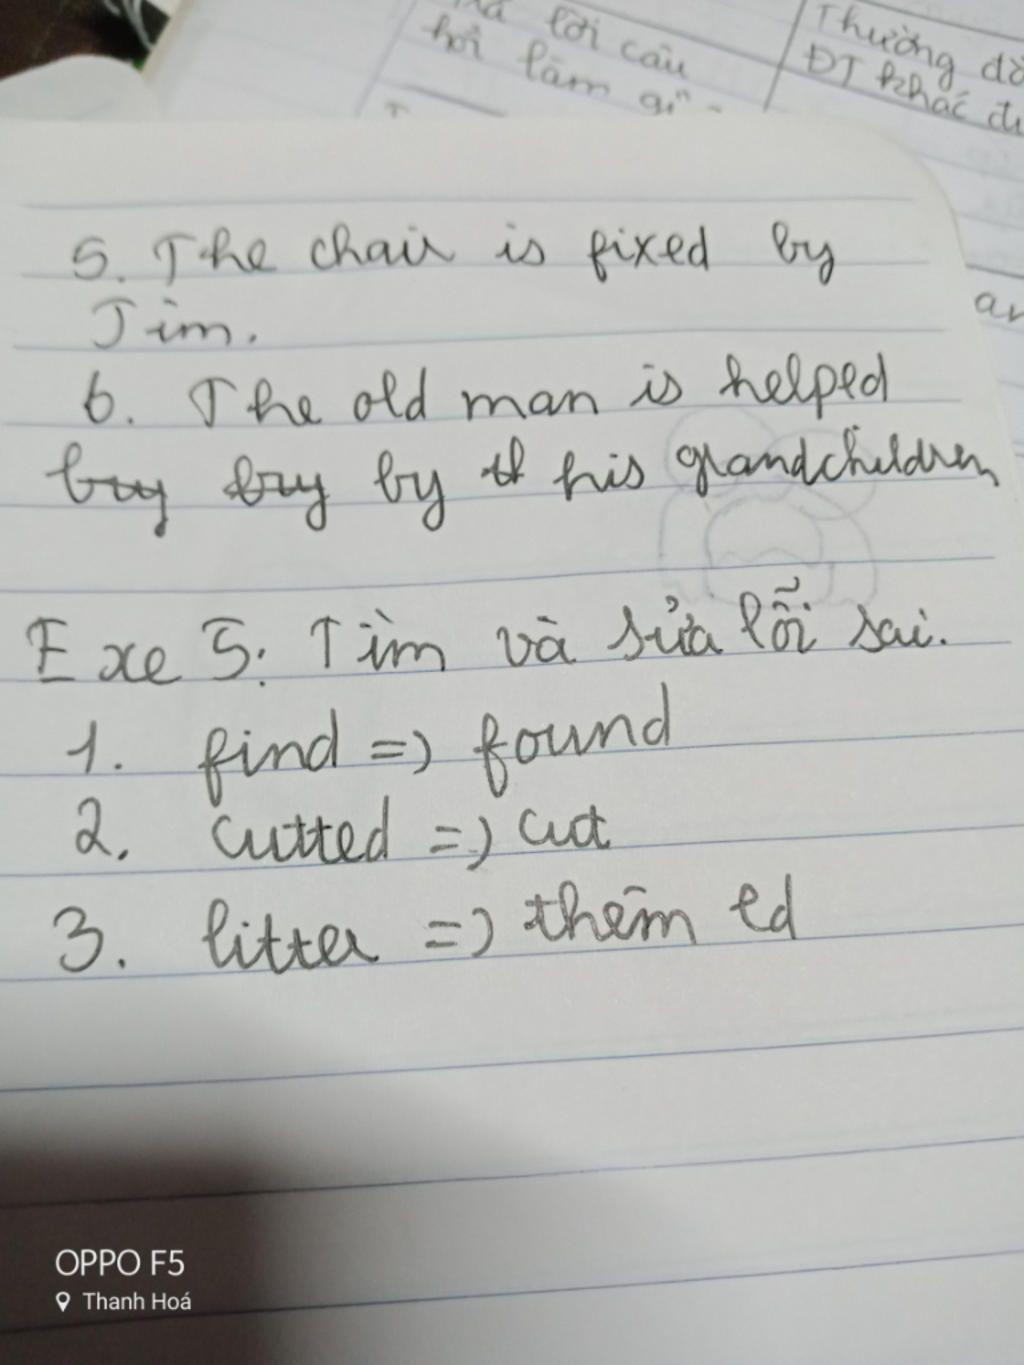 lời câu
hỏi làm gì
Thường
ĐT khác
5. The chair is fixed by
Jim.
6. The old man is helped
buy buy by th his grandchildren
Exe 5: Tìm và sửa lỗi sai.
1. find => found
2. cutted => cut
3. litter => thêm ed
OPPO F5
Thanh Hoá